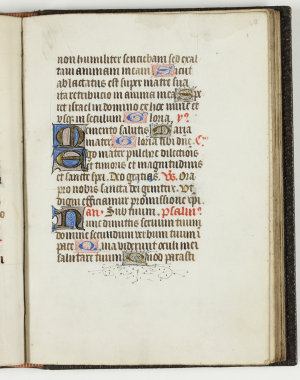 non humiliter sentiebam sed exal
taui animam meam Sicut
ablactatus est super matre sua
ita retributio in anima mea Spe
ret israel in domino ex hoc nunc et
usq in seculum Gloria. ys
Memento salutis Maria
mater Gloria tibi dne. Cm
Ego mater pulchre dilectiois
et timoris et magnitudinis
et sancte spei. Deo gratias. Vs. Ora
pro nobis sancta dei genitrix. Vt
digni efficiamur promissione xpi.
an. Sub tuum. psalm9
Nunc dimittis seruum tuum
domine secundum verbum tuum i
pace Quia viderunt oculi mei
salutare tuum Quod parasti